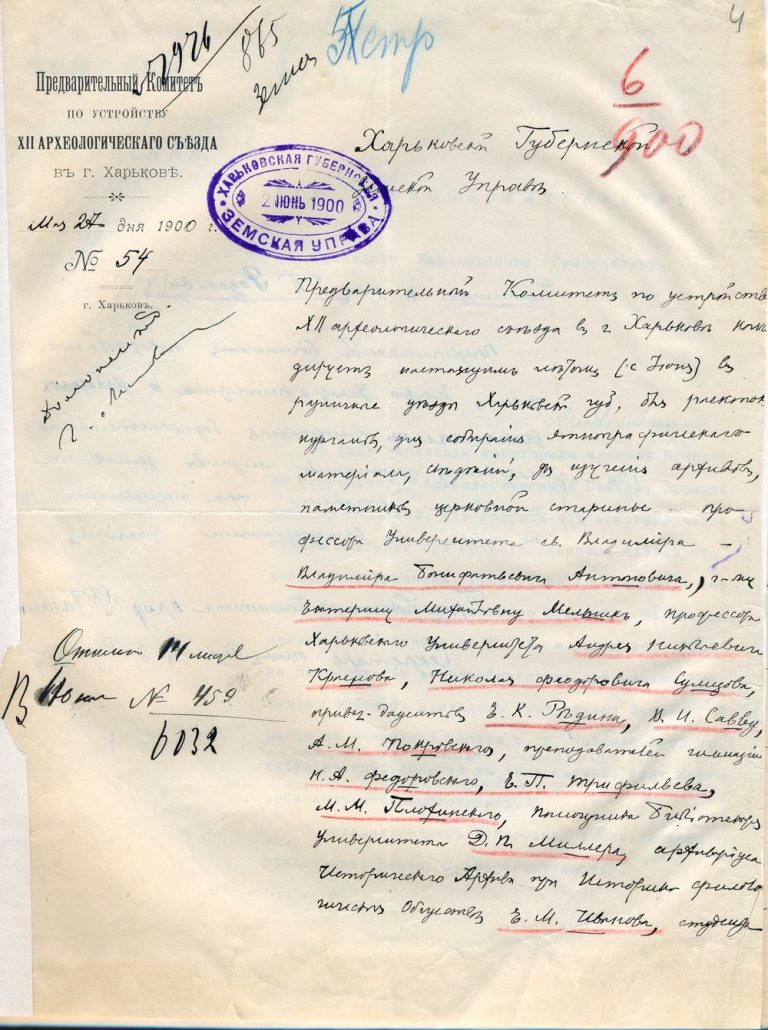 4
52976
865
Петр
6
900
Предварительный Комитетъ
ПО УСТРОЙСТВУ
XII АРХЕОЛОГИЧЕСКАГО СЪѢЗДА
ВЪ Г. ХАРЬКОВѢ.
Мая 27 дня 1900 г.
№ 54
г. Харьковъ.
Харьковской Губернской
Земской Управѣ.
ХАРЬКОВСКАЯ ГУБЕРНСКАЯ
2 ІЮНЬ 1900
ЗЕМСКАЯ УПРАВА
Предварительный Комитетъ по устройству
XII археологическаго съѣзда въ г. Харьковѣ коман
дируетъ настоящимъ лѣтомъ (съ Іюня) въ
различные уѣзды Харьковской губ. для раскопок
кургановъ, для собиранія этнографическаго
матеріала, свѣдѣній, для изученія архивовъ,
памятниковъ церковной старины – про
фессора Университета св. Владиміра –
Владиміра Бонифатьевича Антоновича, г-жу
Екатерину Михайловну Мельникъ, профессора
Харьковскаго Университета Андрея Николаевича
Краснова, Николая Федоровича Сумцова,
приват-доцентовъ Е. К. Рѣдина, В. И. Савву,
А. М. Покровскаго, преподавателей гимназіи
Н. А. Федоровскаго, Е. П. Трифильева,
М. М. Плохинскаго, помощника библіотекаря
Университета Д. П. Миллера, архиваріуса
Историческаго Архива при Историко-филоло
гическомъ Обществѣ Е. М. Иванова, студента
14
№ 459
6032